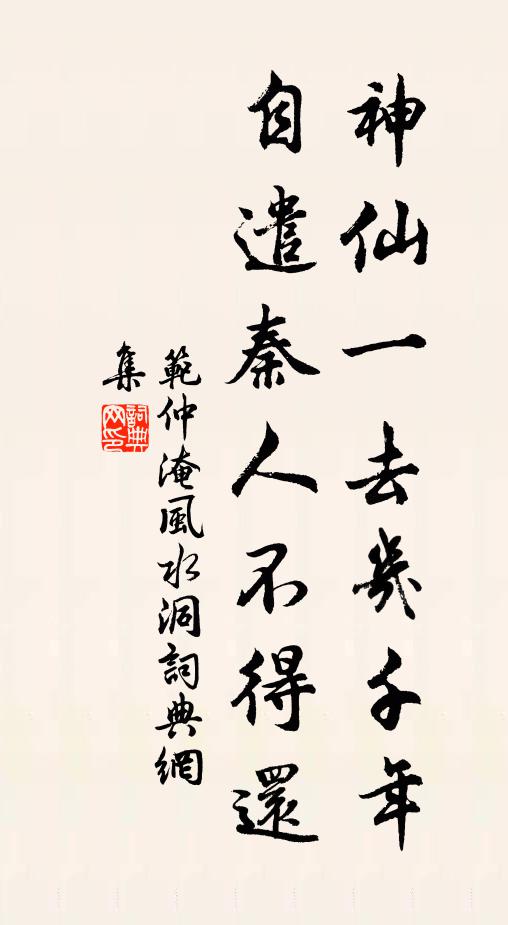 神仙一去幾千年
自遣秦人不得還
範仲淹風水洞詞典網
集
詞典
网印